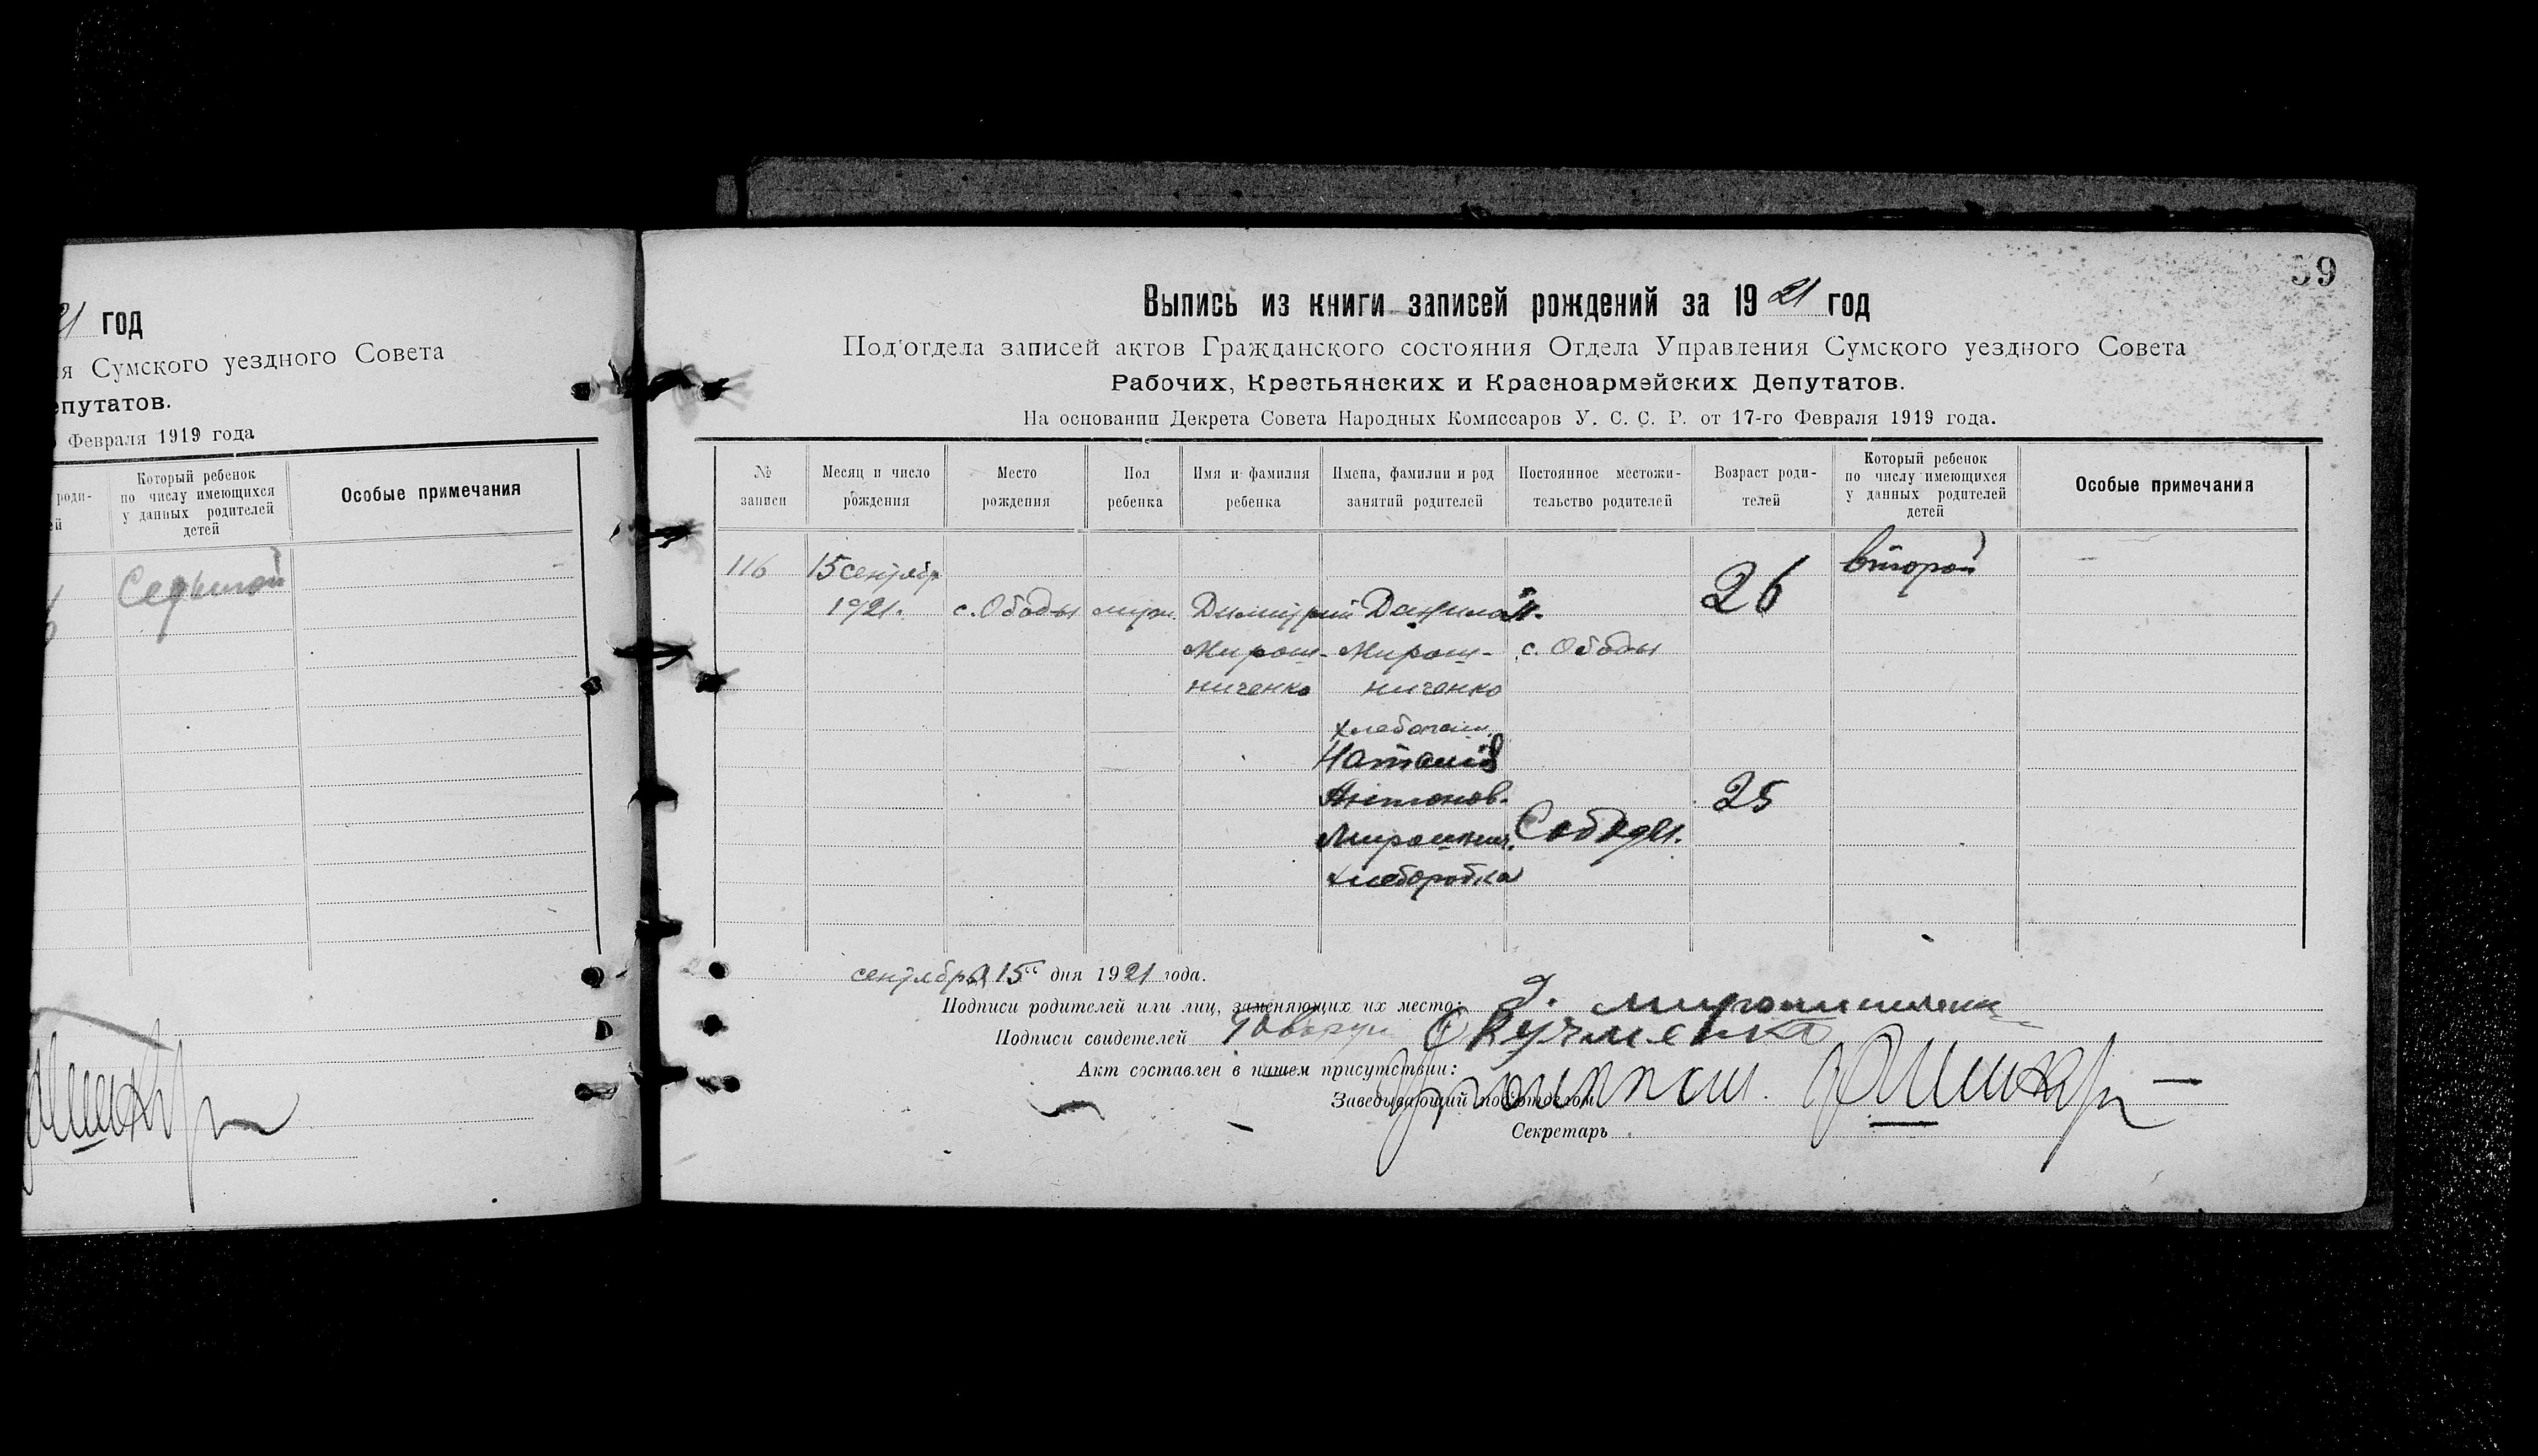 21 год
я Сумского уездного Совета
епутатов.
Февраля 1919 года
роди-
ей
Который ребенок
по числу имеющихся
у данных родителей
детей
Особые примечания
Седьмой
59
Выпись из книги записей рождений за 1921 год
Под'отдела записей актов Гражданского состояния Отдела Управления Сумского уездного Совета
Рабочих, Крестьянских и Красноармейских Депутатов.
На основании Декрета Совета Народных Комиссаров У. С. С. Р. от 17-го Февраля 1919 года.
№
записи
Месяц и число
рождения
Место
рождения
Пол
ребенка
Имя и фамилия
ребенка
Имена, фамилии и род
занятий родителей
Постоянное местожи-
тельство родителей
Возраст роди-
телей
Который ребенок
по числу имеющихся
у данных родителей
детей
Особые примечания
116
15 сентябр
1921.
с. Ободы
муж.
Димитрий
Мирош-
ниченко
Данило
Мирош-
ниченко
хлебопаш.
Наталія
Антонов.
Мирошнич.
хлеборобка
с. Ободы
С Ободы.
26
25
второй
сентября 15 " дня 1921 года.
Подписи родителей или лиц, заменяющих их место:
Подписи свидетелей Кучменко
Акт составлен в нашем присутствии:
Заведывающий под'отделом
Секретарь